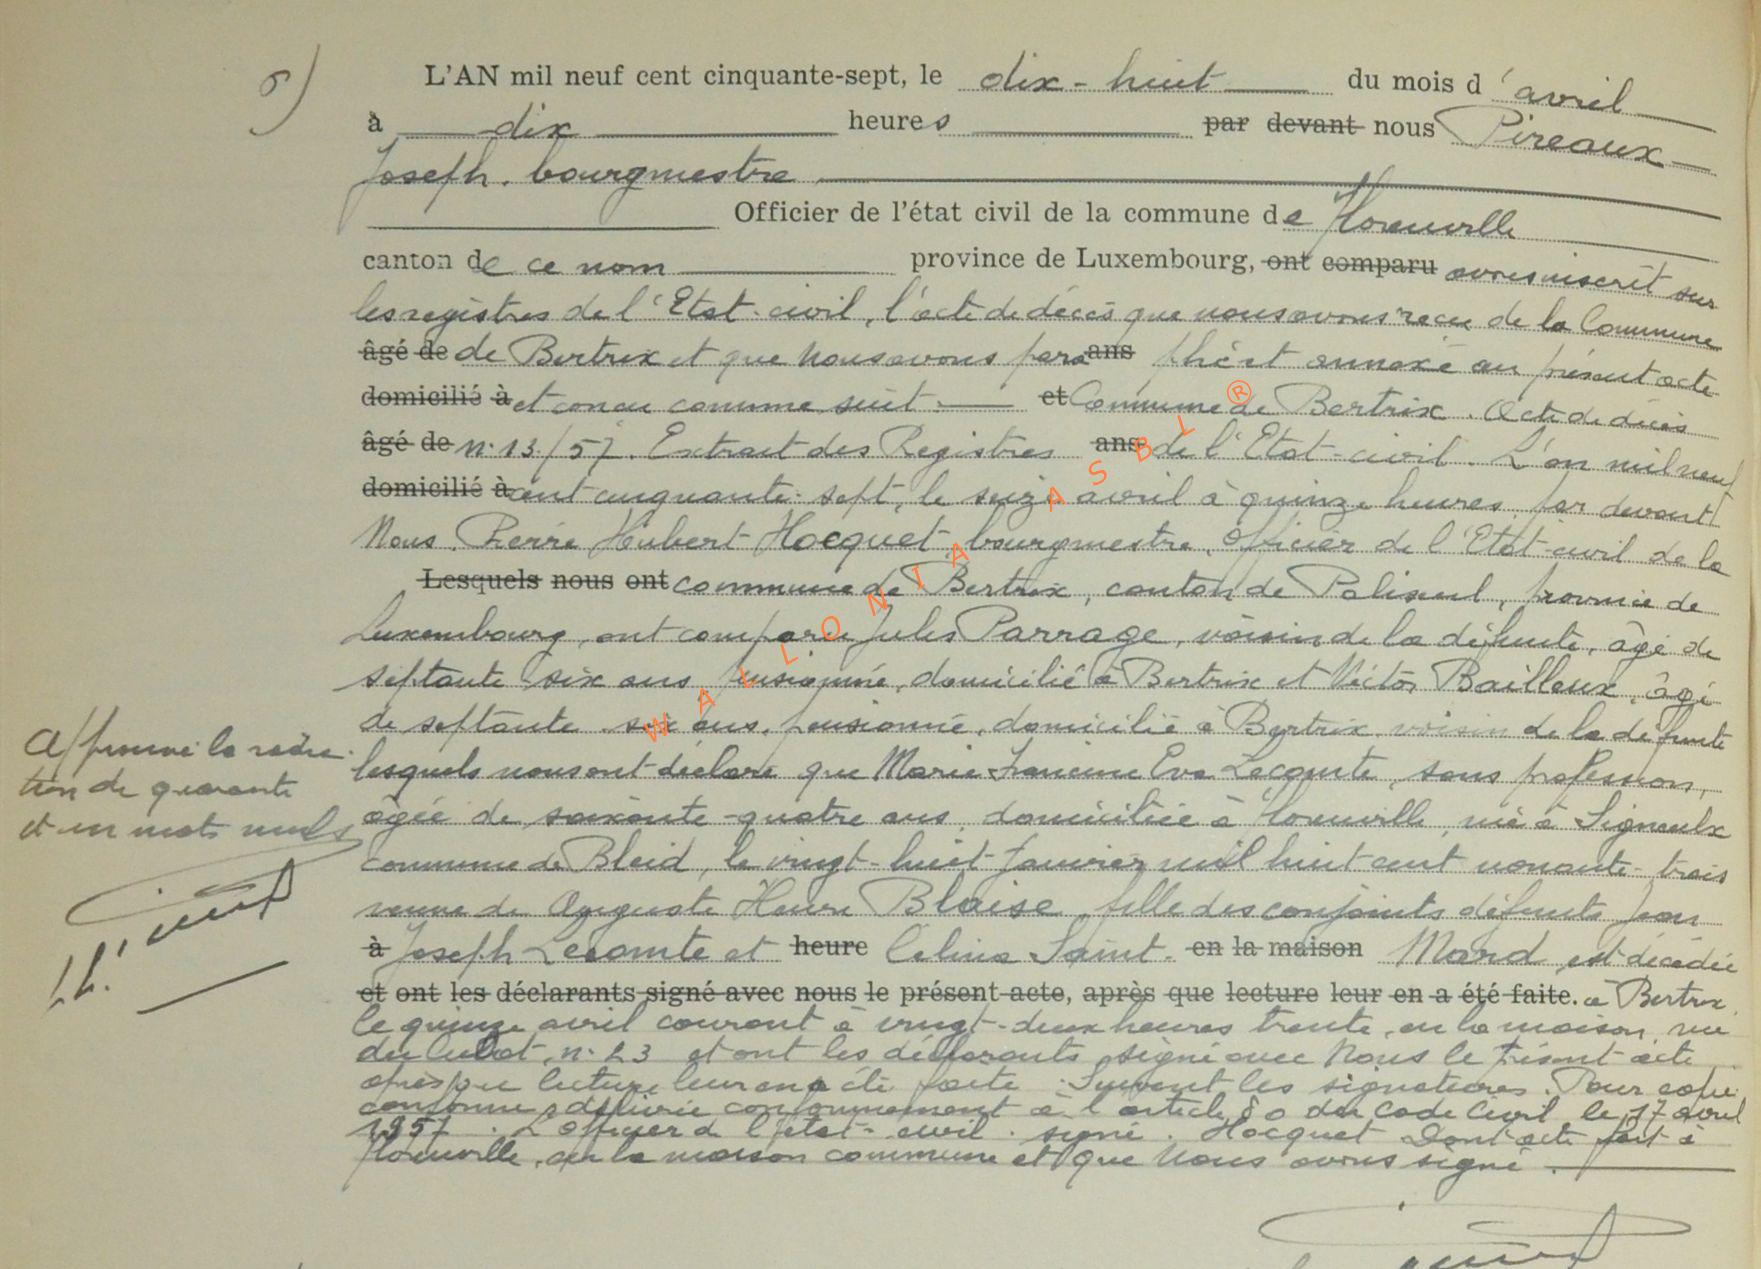 6)
L'AN mil neuf cent cinquante-sept, le dix-huit du mois d'avril
à dix heures par devant nous Pireaux
Joseph, bourgmestre
Officier de l'état civil de la commune de Florenville
canton de ce nom province de Luxembourg, ont comparu avons inscrit sur
les registres de l'Etat-civil, l'acte de décès que nous avons reçu de la Commune
âgé de de Bertrix et que nous avons para ans phé et annexé au présent acte
domicilié à et conçu comme suit : et Commune de Bertrix. Acte de décès
âgé de n. 13/57. Extrait des Registres ans de l'Etat-civil. L'an mil neuf
domicilié à cent cinquante-sept, le seize avril à quinze heures, par devant
Nous, Pierre Hubert Hocquet, bourgmestre, Officier de l'Etat-civil de la
Lesquels nous ont commune de Bertrix, canton de Paliseul, province de
Luxembourg, ont comparu Jules Parrage, voisin de la défunte, âgé de
septante six ans, pensionné, domicilié à Bertrix et Victor Bailleux, âgé
de septante six ans, pensionné, domicilié à Bertrix, voisin de la défunte
lesquels nous ont déclaré que Marie Francine Eva Lecomte, sans profession,
âgée de soixante-quatre ans, domiciliée à Florenville, née à Signeulx
commune de Bleid, le vingt-huit janvier mil huit cent nonante-trois
veuve de Auguste Henri Blaise, fille des conjoints défunts Jean
à Joseph Lecomte et heure Célina Saint- en la maison Mard, est décédée
et ont les déclarants signé avec nous le présent acte, après que lecture leur en a été faite. à Bertrix,
le quinze avril courant à vingt-deux heures trente, en la maison, rue
du Culot, n. 23 et ont les déclarants signé avec Nous le présent acte
après que lecture leur en a été faite. Suivent les signatures. Pour copie
conforme, délivrée conformément à l'article 80 du Code Civil le 17 avril
1957. L'Officier de l'état-civil. signé. Hocquet Dont acte fait à
Florenville, en la maison commune et que Nous avons signé.
Approuvé la radia-
tion de quarante
et un mots nuls
WALLONIA ASBL ®